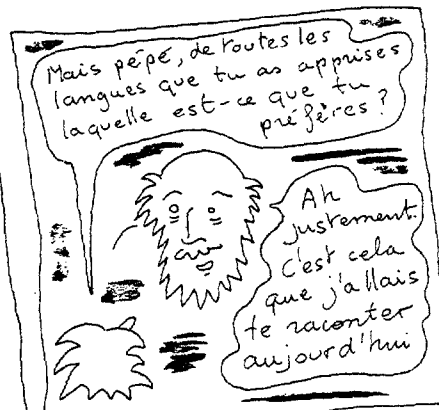 Mais pépé, de toutes les
langues que tu as apprises
laquelle est-ce que tu
préfères?
Ah
justement.
C'est cela
que j'allais
te raconter
aujourd'hui